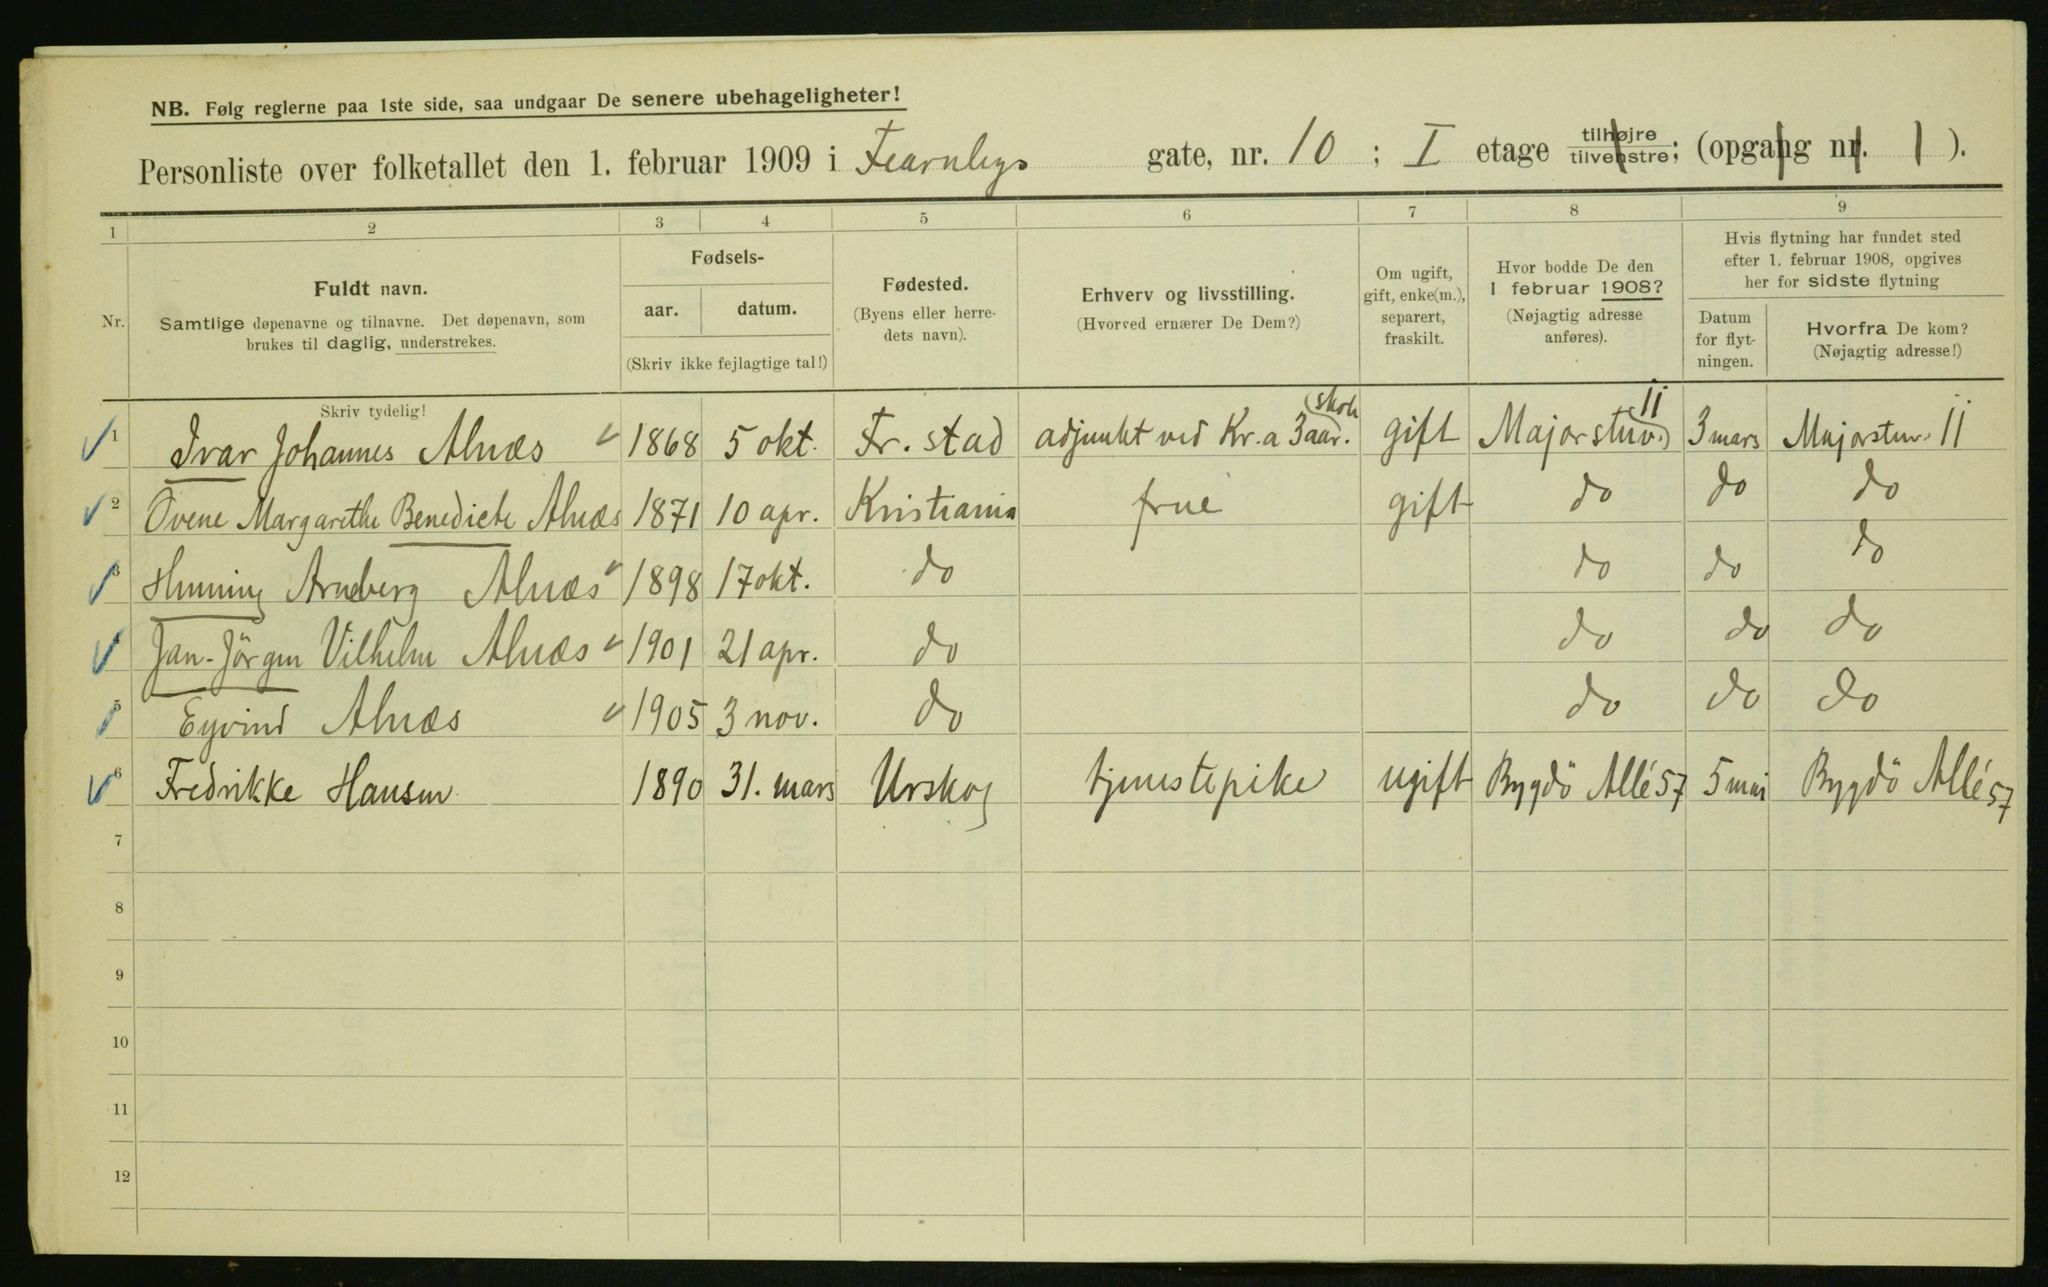 NB. Følg reglerne paa 1ste side, saa undgaar De senere ubehageligheter!
Personliste over folketallet den 1. februar 1909 i Fearnleys gate, nr. 10 ; I etage tilhøjre/tilvenstre; (opgang nr. 1 ).
1 2 3 4 5 6 7 8 9
Nr.
Fuldt navn.
Samtlige døpenavne og tilnavne. Det døpenavn, som
brukes til daglig, understrekes.
Fødsels-
aar. datum.
(Skriv ikke fejlagtige tal!)
Fødested.
(Byens eller herre-
dets navn).
Erhverv og livsstilling.
(Hvorved ernærer De Dem?)
Om ugift,
gift, enke(m.),
separert,
fraskilt.
Hvor bodde De den
1 februar 1908?
(Nøjagtig adresse
anføres).
Hvis flytning har fundet sted
efter 1. februar 1908, opgives
her for sidste flytning
Datum
for flyt-
ningen.
Hvorfra De kom?
(Nøjagtig adresse!)
Skriv tydelig!
1 Ivar Johannes Alnæs 1868 5 okt. Fr.stad adjunkt ved Kr.a 3 aar. skole gift Majorstuv. 11 3 mars Majorstuv. 11
2 Ovene Margarethe Benedicte Alnæs 1871 10 apr. Kristiania frue gift do do do
3 Henning Arneberg Alnæs 1898 17 okt. do do do do
4 Jan-Jörgen Vilhelm Alnæs 1901 21 apr. do do do do
5 Eyvind Alnæs 1905 3 nov. do do do do
6 Fredrikke Hansen 1890 31. mars Urskog tjenestepike ugift Bygdö Allé 57 5 mai Bygdö Allé 57
7
8
9
10
11
12